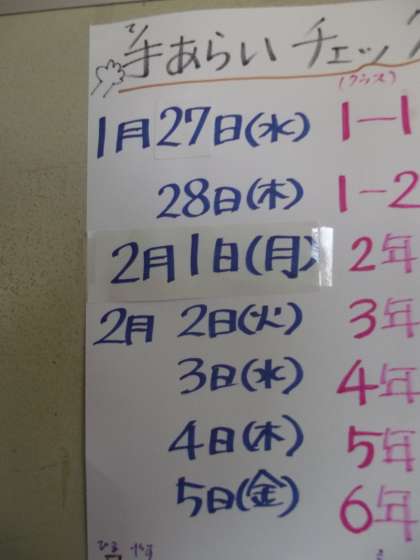 手あらいチェック
(クラス)
1月27日(水) 1-1
28日(木) 1-2
2月1日(月) 2年
2月 2日(火) 3年
3日(水) 4年
4日(木) 5年
5日(金) 6年
ひる やす